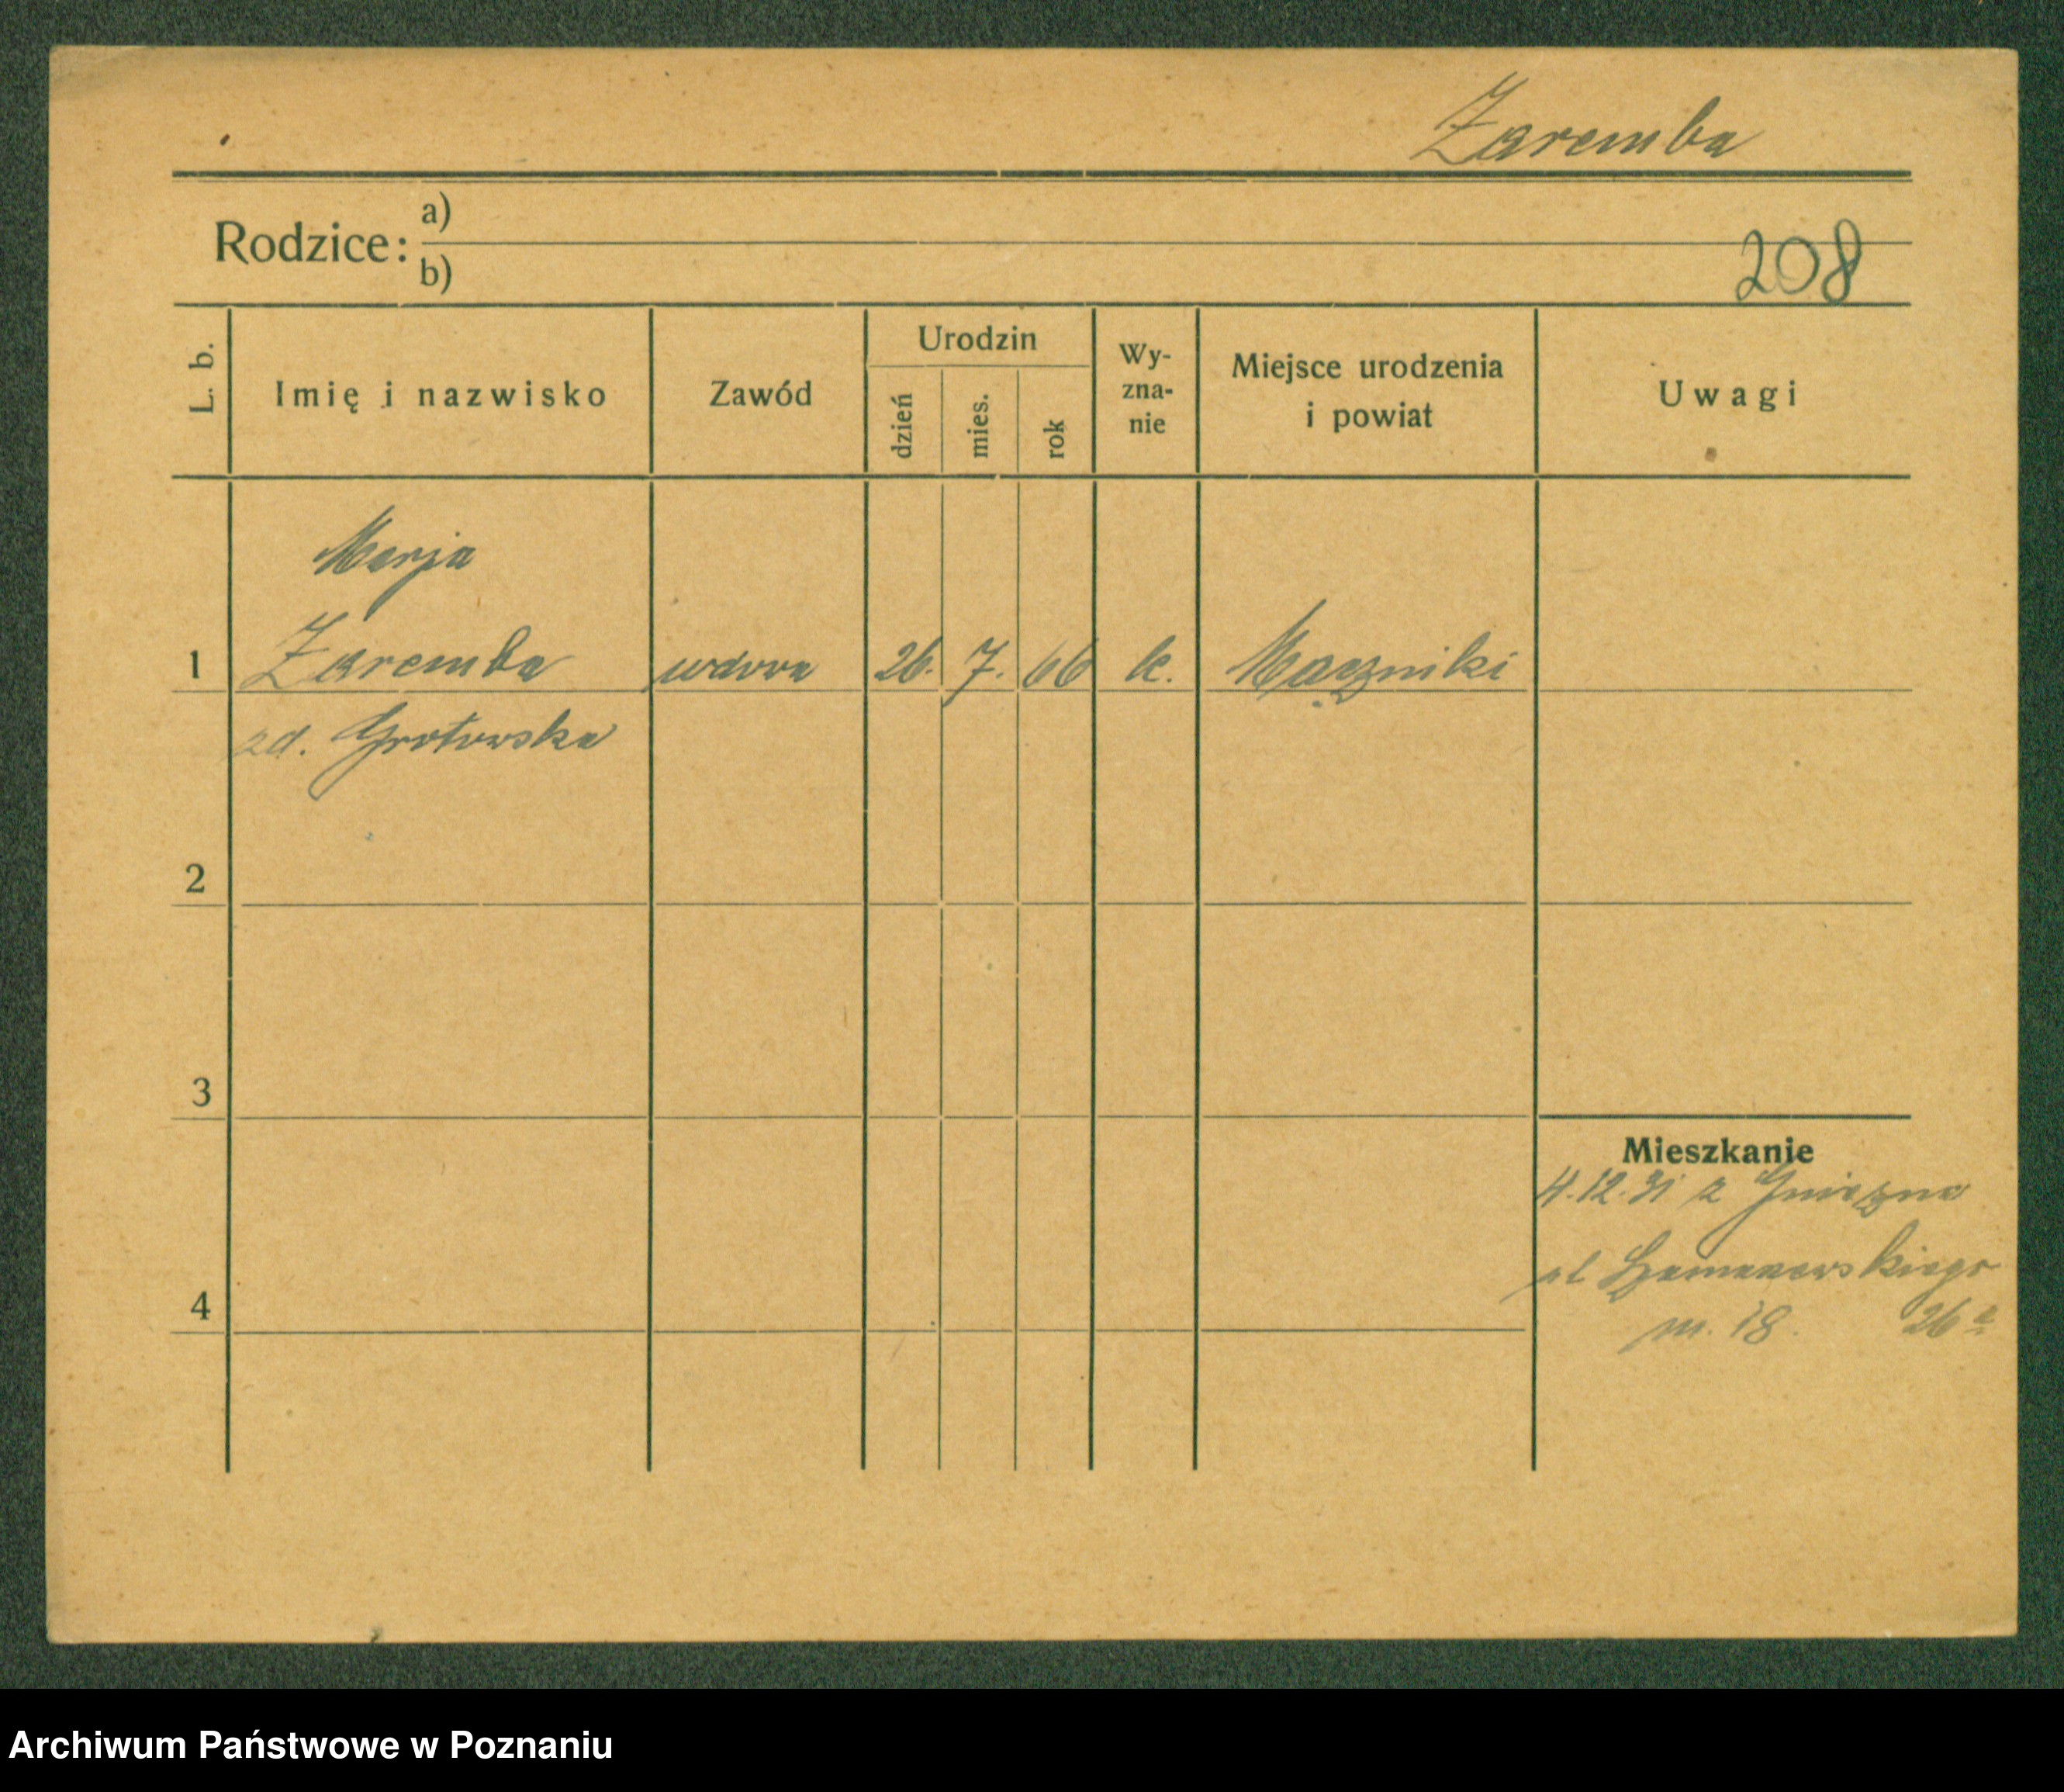 Zaremba
Rodzice: a)
b)
208
L. b. Imię i nazwisko Zawód Urodzin dzień mies. rok Wy-zna-nie Miejsce urodzenia i powiat Uwagi
Marja
1 Zaremba wdowa 26. 7. 66 k. Mączniki
zd. Grotowska
2
3
Mieszkanie
4.12.31 z Gniezna
4
m. 18. 26a
Archiwum Państwowe w Poznaniu